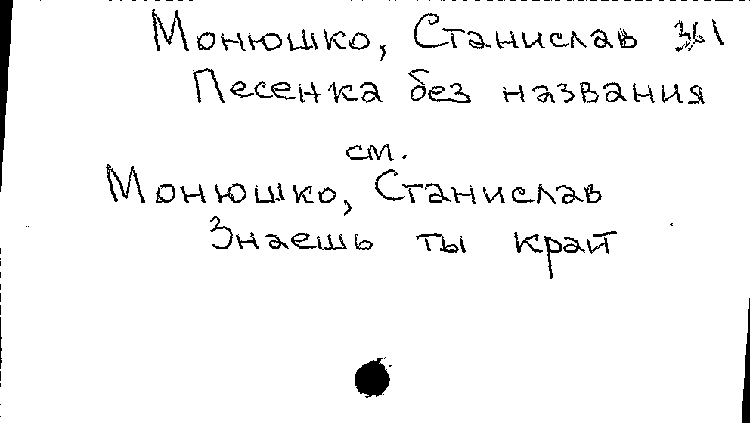 Монюшко, Станислав 361
Песенка без названия
см.
Монюшко, Станислав
Знаешь ты край